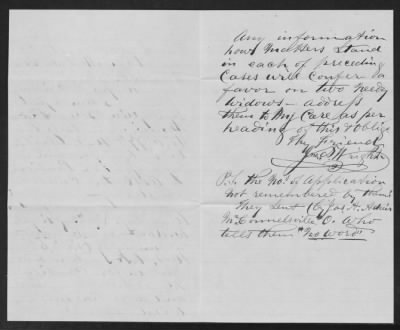 Any information
how matters stand
in each of preceding
Cases will confer a
favor on two needy
widows - address
them to My Care as per
heading of this & oblige
Thy Friend
Wright
P.S. the No. of Application
not remembered by them
They sent by Jas.
McConnelsville O. Who
tells them "No word"